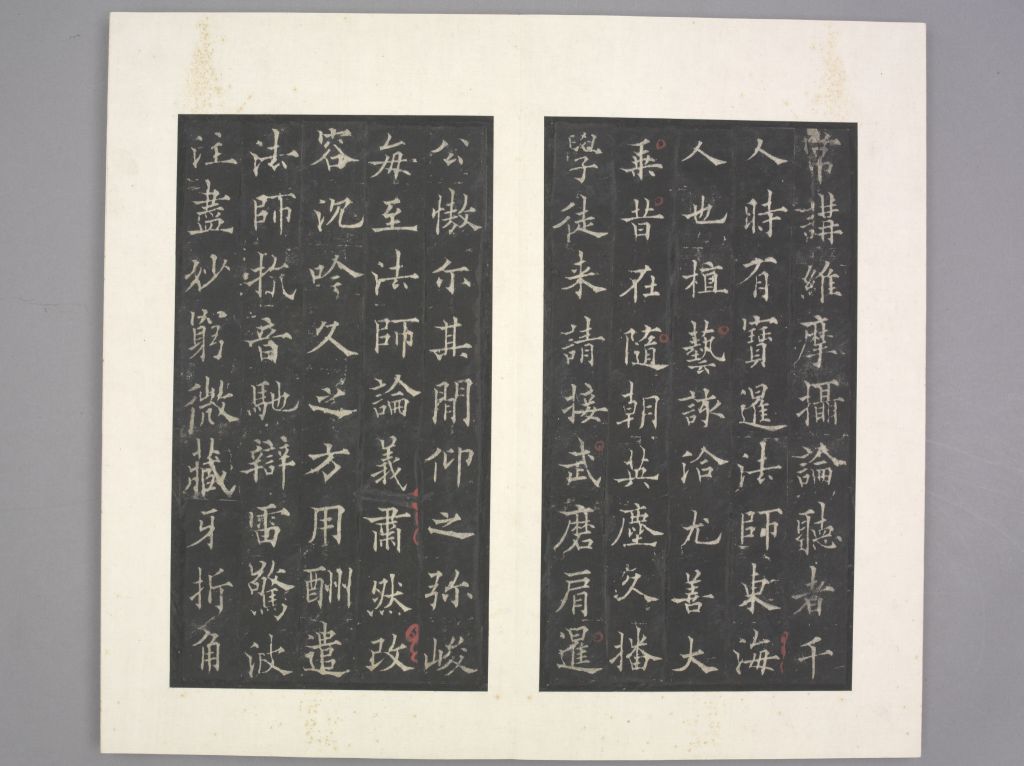 常講維摩攝論聽者千
人時有寶暹法師東海
人也植藝該洽尤善大
乘昔在隨朝英塵久播
學徒来請接武磨肩暹
公慠尓其間仰之弥峻
每至法師論義肅然改
容沉吟久之方用酬遣
法師抗音馳辯雷驚波
注盡妙窮微藏牙折角